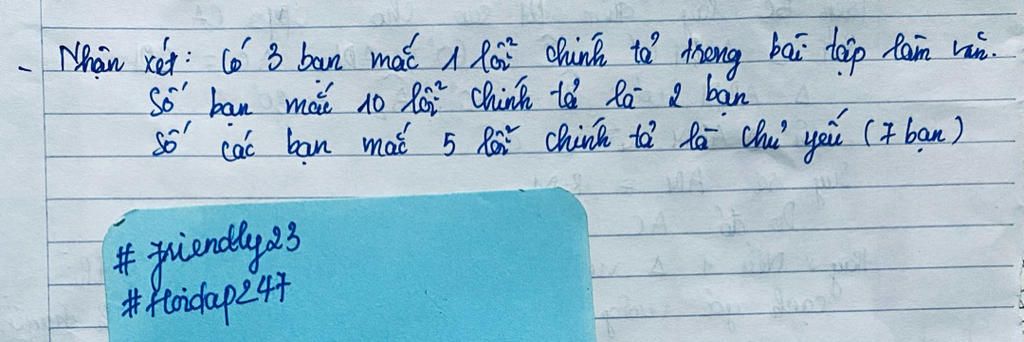 - Nhận xét: Có 3 bạn mắc 1 lỗi chính tả trong bài tập làm văn.
Số bạn mắc 10 lỗi chính tả là 2 bạn
Số các bạn mắc 5 lỗi chính tả là chủ yếu (7 bạn)
# friendly23
# Hoidap247